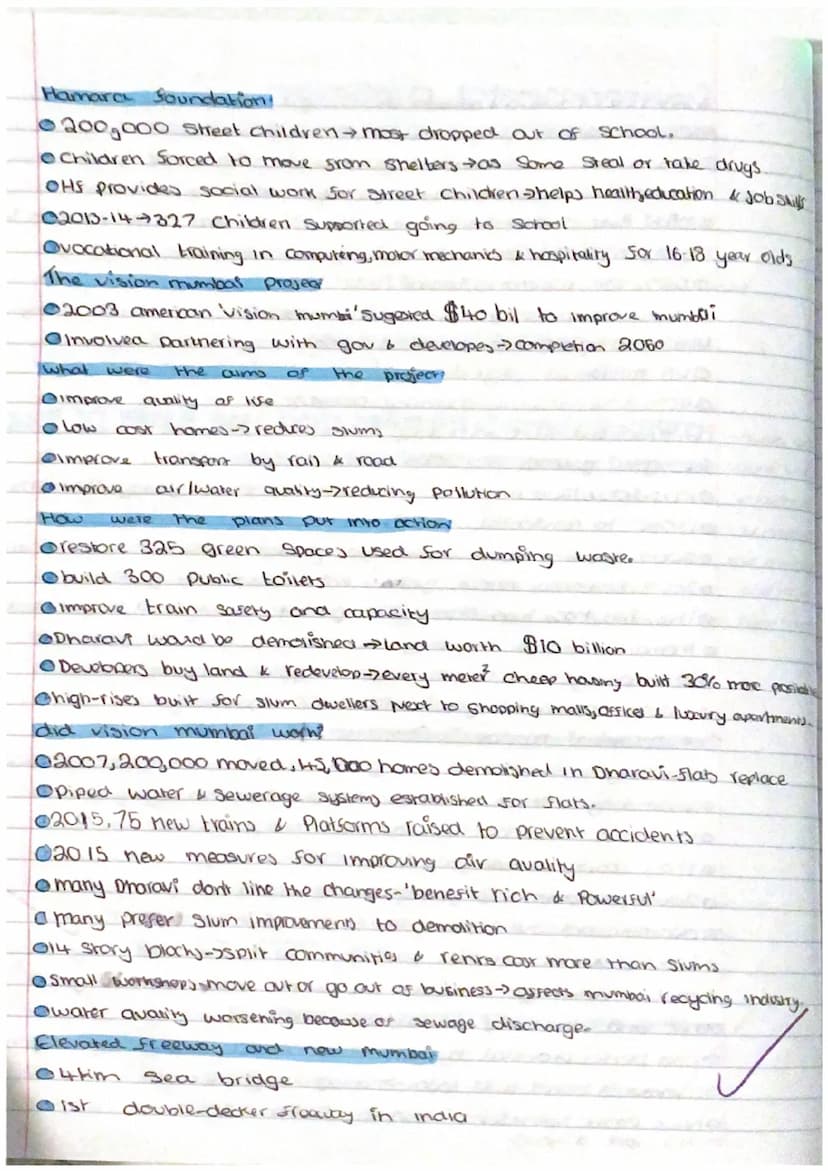 Hamara foundation:
200,000 Street children → most dropped out of school.
Children forced to move from shelters → as some steal or take drugs.
HF provides social work for street children → helps health, education & job skills
2013-14 → 327 children supported going to school
vocational training in computing, motor mechanics & hospitality for 16-18 year olds
The vision mumbai project
2003 american 'vision mumbai' sugested $40 bil to improve mumbai
Involved partnering with gov & developes → completion 2050
What were the aims of the project?
improve quality of life
low cost homes → reduces slums
improve transport by rail & road
improve air/water quality → reducing pollution
How were the plans put into action
restore 325 green spaces used for dumping waste.
build 300 public toilets
improve train safety and capacity
Dharavi would be demolished → land worth $10 billion
Developers buy land & redevelop → every meter² cheep housing built 30% more possible
high-rises built for slum dwellers next to shopping malls, offices & luxury apartments.
did vision mumbai work?
2007, 200,000 moved, 45,000 homes demolished in Dharavi-flats replace
Piped water & sewerage systems established for flats.
2015, 75 new trains & Platforms raised to prevent accidents
2015 new measures for improving air quality
many Dharavi dont like the changes-'benefit rich & Powerful'
many prefer slum improvements to demolition
14 story blocks → split communities & rents cost more than slums
Small workshops move out or go out of business → affects mumbai recycling industry.
water quality worsening because of sewage discharge.
Elevated freeway and new mumbai
4km sea bridge
1st double-decker freeway in india